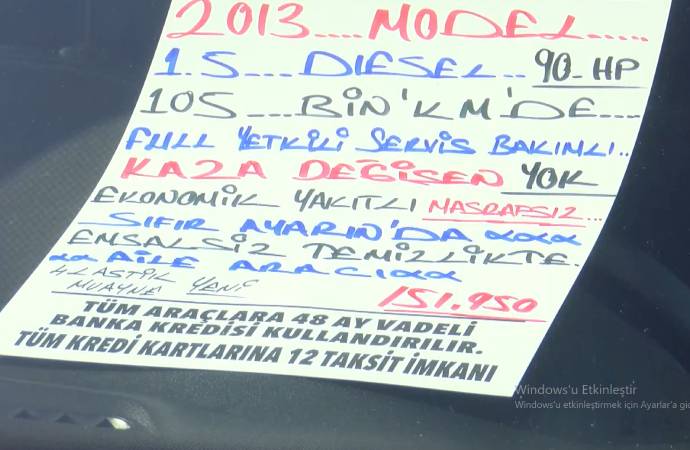 2013....MODEL.....
1.5....DIESEL..90-HP
105....BİN'KM'DE....
FULL YETKİLİ SERVİS BAKIMLI..
KAZA DEĞİŞEN YOK
EKONOMİK YAKITLI MASRAFSIZ...
SIFIR AYARIN'DA
EMSALSİZ TEMİZLİKTE.
AİLE ARACI
4 LASTİK YENİ
MUAYNE
151.950
TÜM ARAÇLARA 48 AY VADELİ
BANKA KREDİSİ KULLANDIRILIR.
TÜM KREDİ KARTLARINA 12 TAKSİT İMKANI
Windows'u Etkinleştir
Windows'u etkinleştirmek için Ayarlar'a